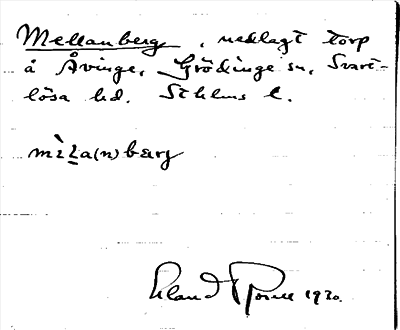 Mellanberg, nedlagt torp
å Åvinge, Grödinge sn, Svart-
lösa hd. Sthlms l.
mìḷa(n)bærg
Erland Rosell 1930.